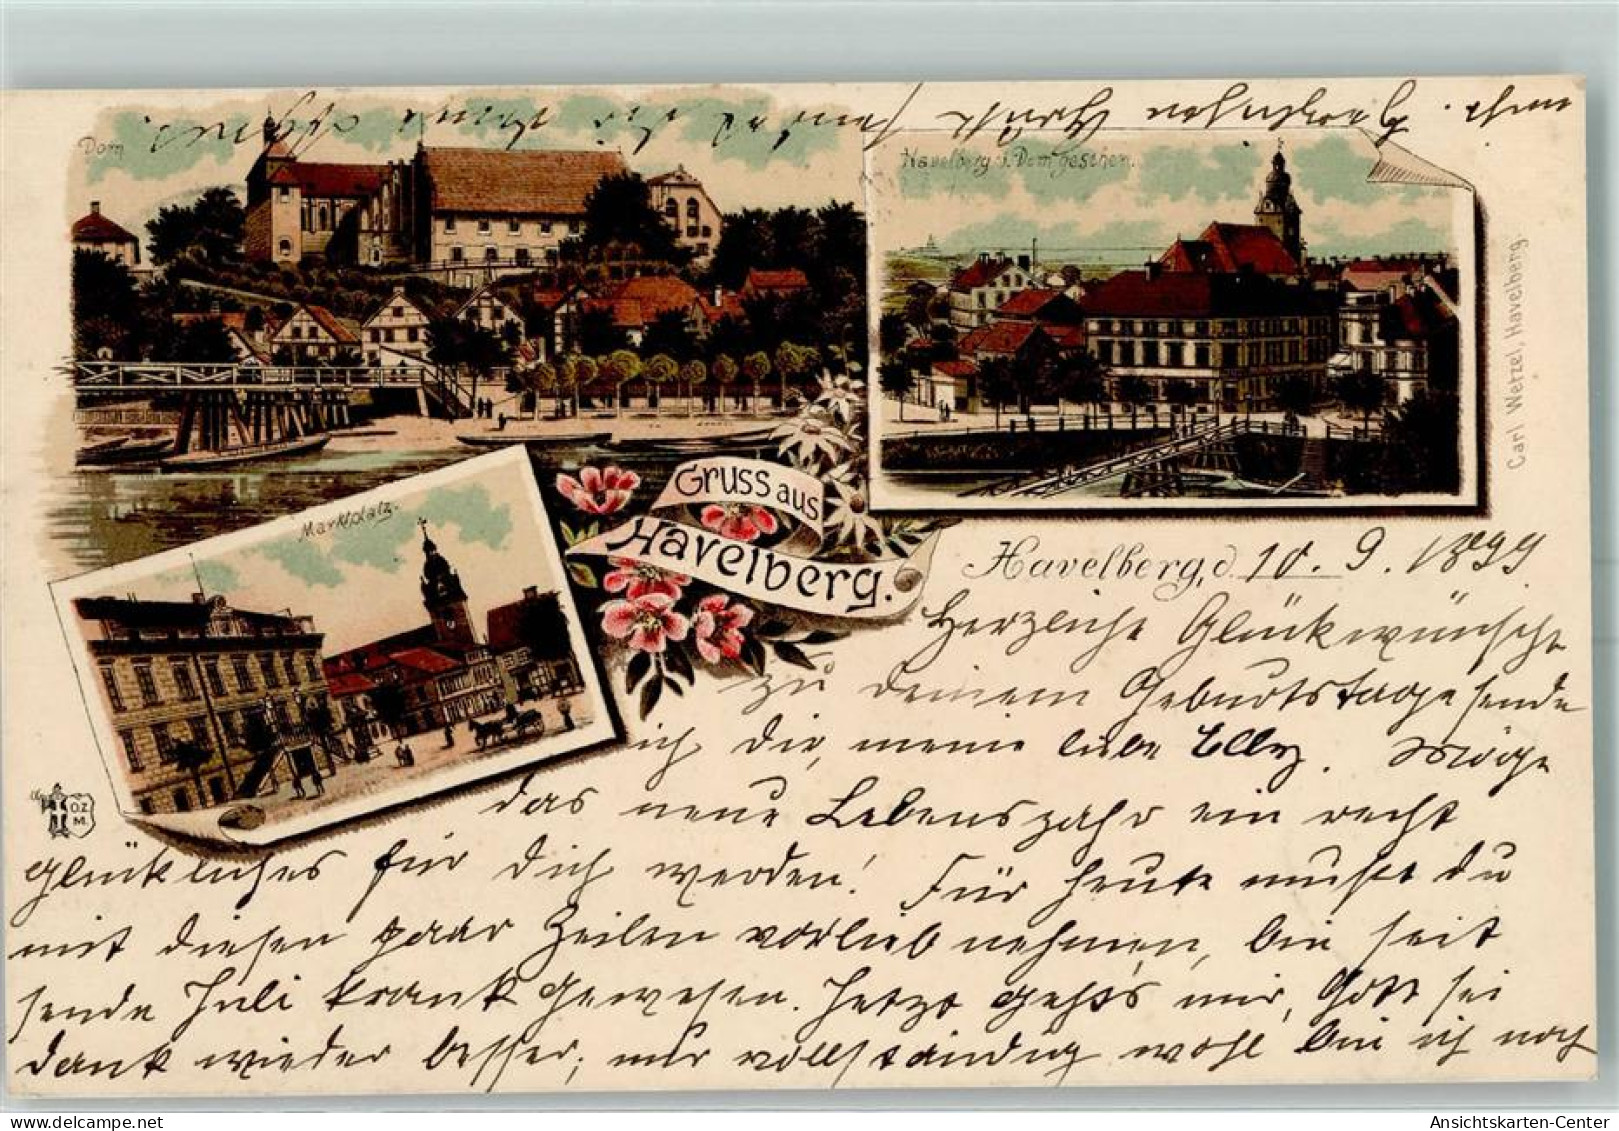 Dom
Havelberg v. Dom gesehen.
Carl Wetzel, Havelberg.
Marktplatz.
Gruss aus
Havelberg.
O.Z.
M.
Havelberg, d. 10. 9. 1899
Herzliche Glückwünsche
zu deinem Geburtstage sende
ich dir, meine liebe Elly. Möge
das neue Lebensjahr ein recht
glückliches für dich werden! Für heute mußt du
mit diesen paar Zeilen vorlieb nehmen, bin seit
Ende Juli krank gewesen. Jetzt geht's mir, Gott sei
dank wieder besser; nur vollständig wohl bin ich noch
nicht.
Ansichtskarten-Center